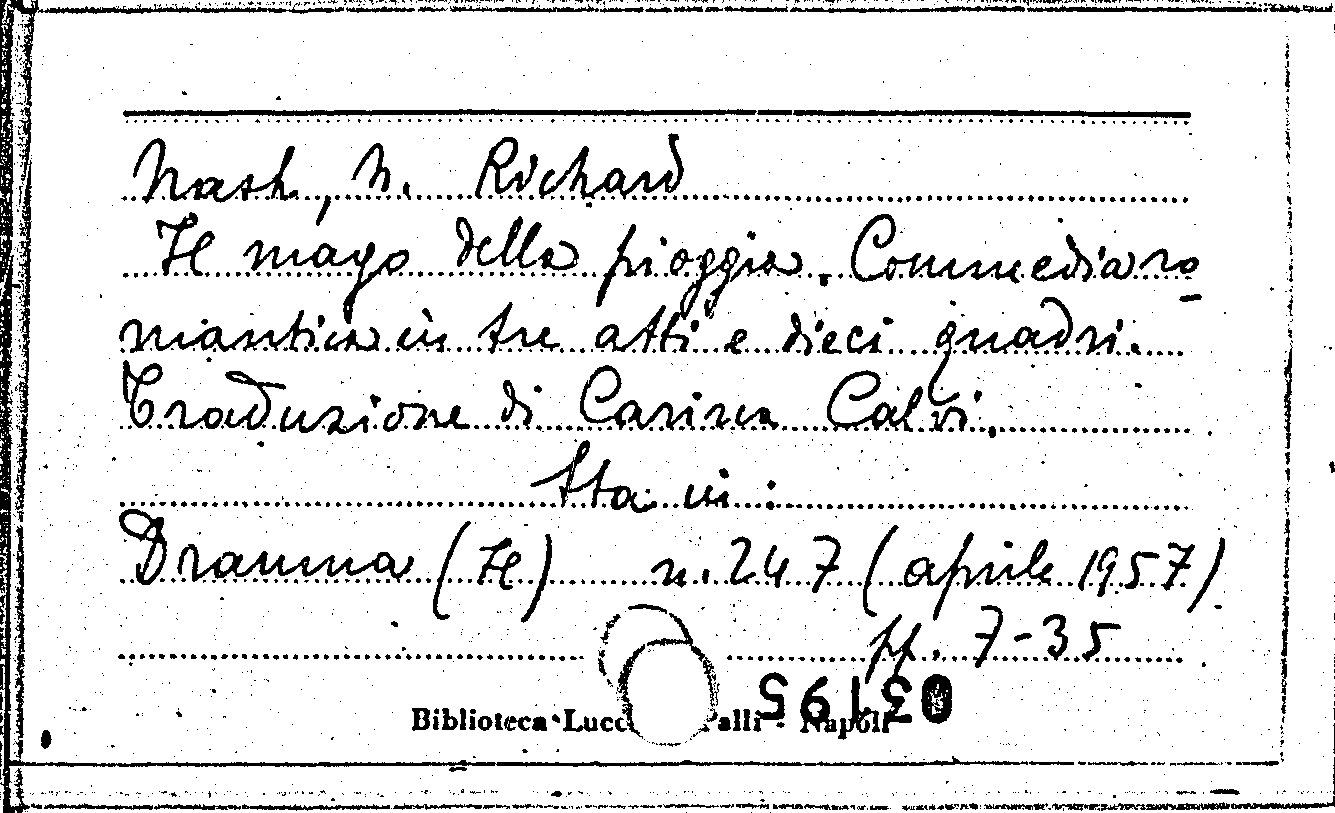 Nash, N. Richard
Il mago della pioggia. Commedia ro
mantica in tre atti e dieci quadri.
Traduzione di Carina Calvi.
Sta in:
Dramma (Il) n. 247 (aprile 1957)
pp. 7-35
03195
Biblioteca Lucc alli - Napoli